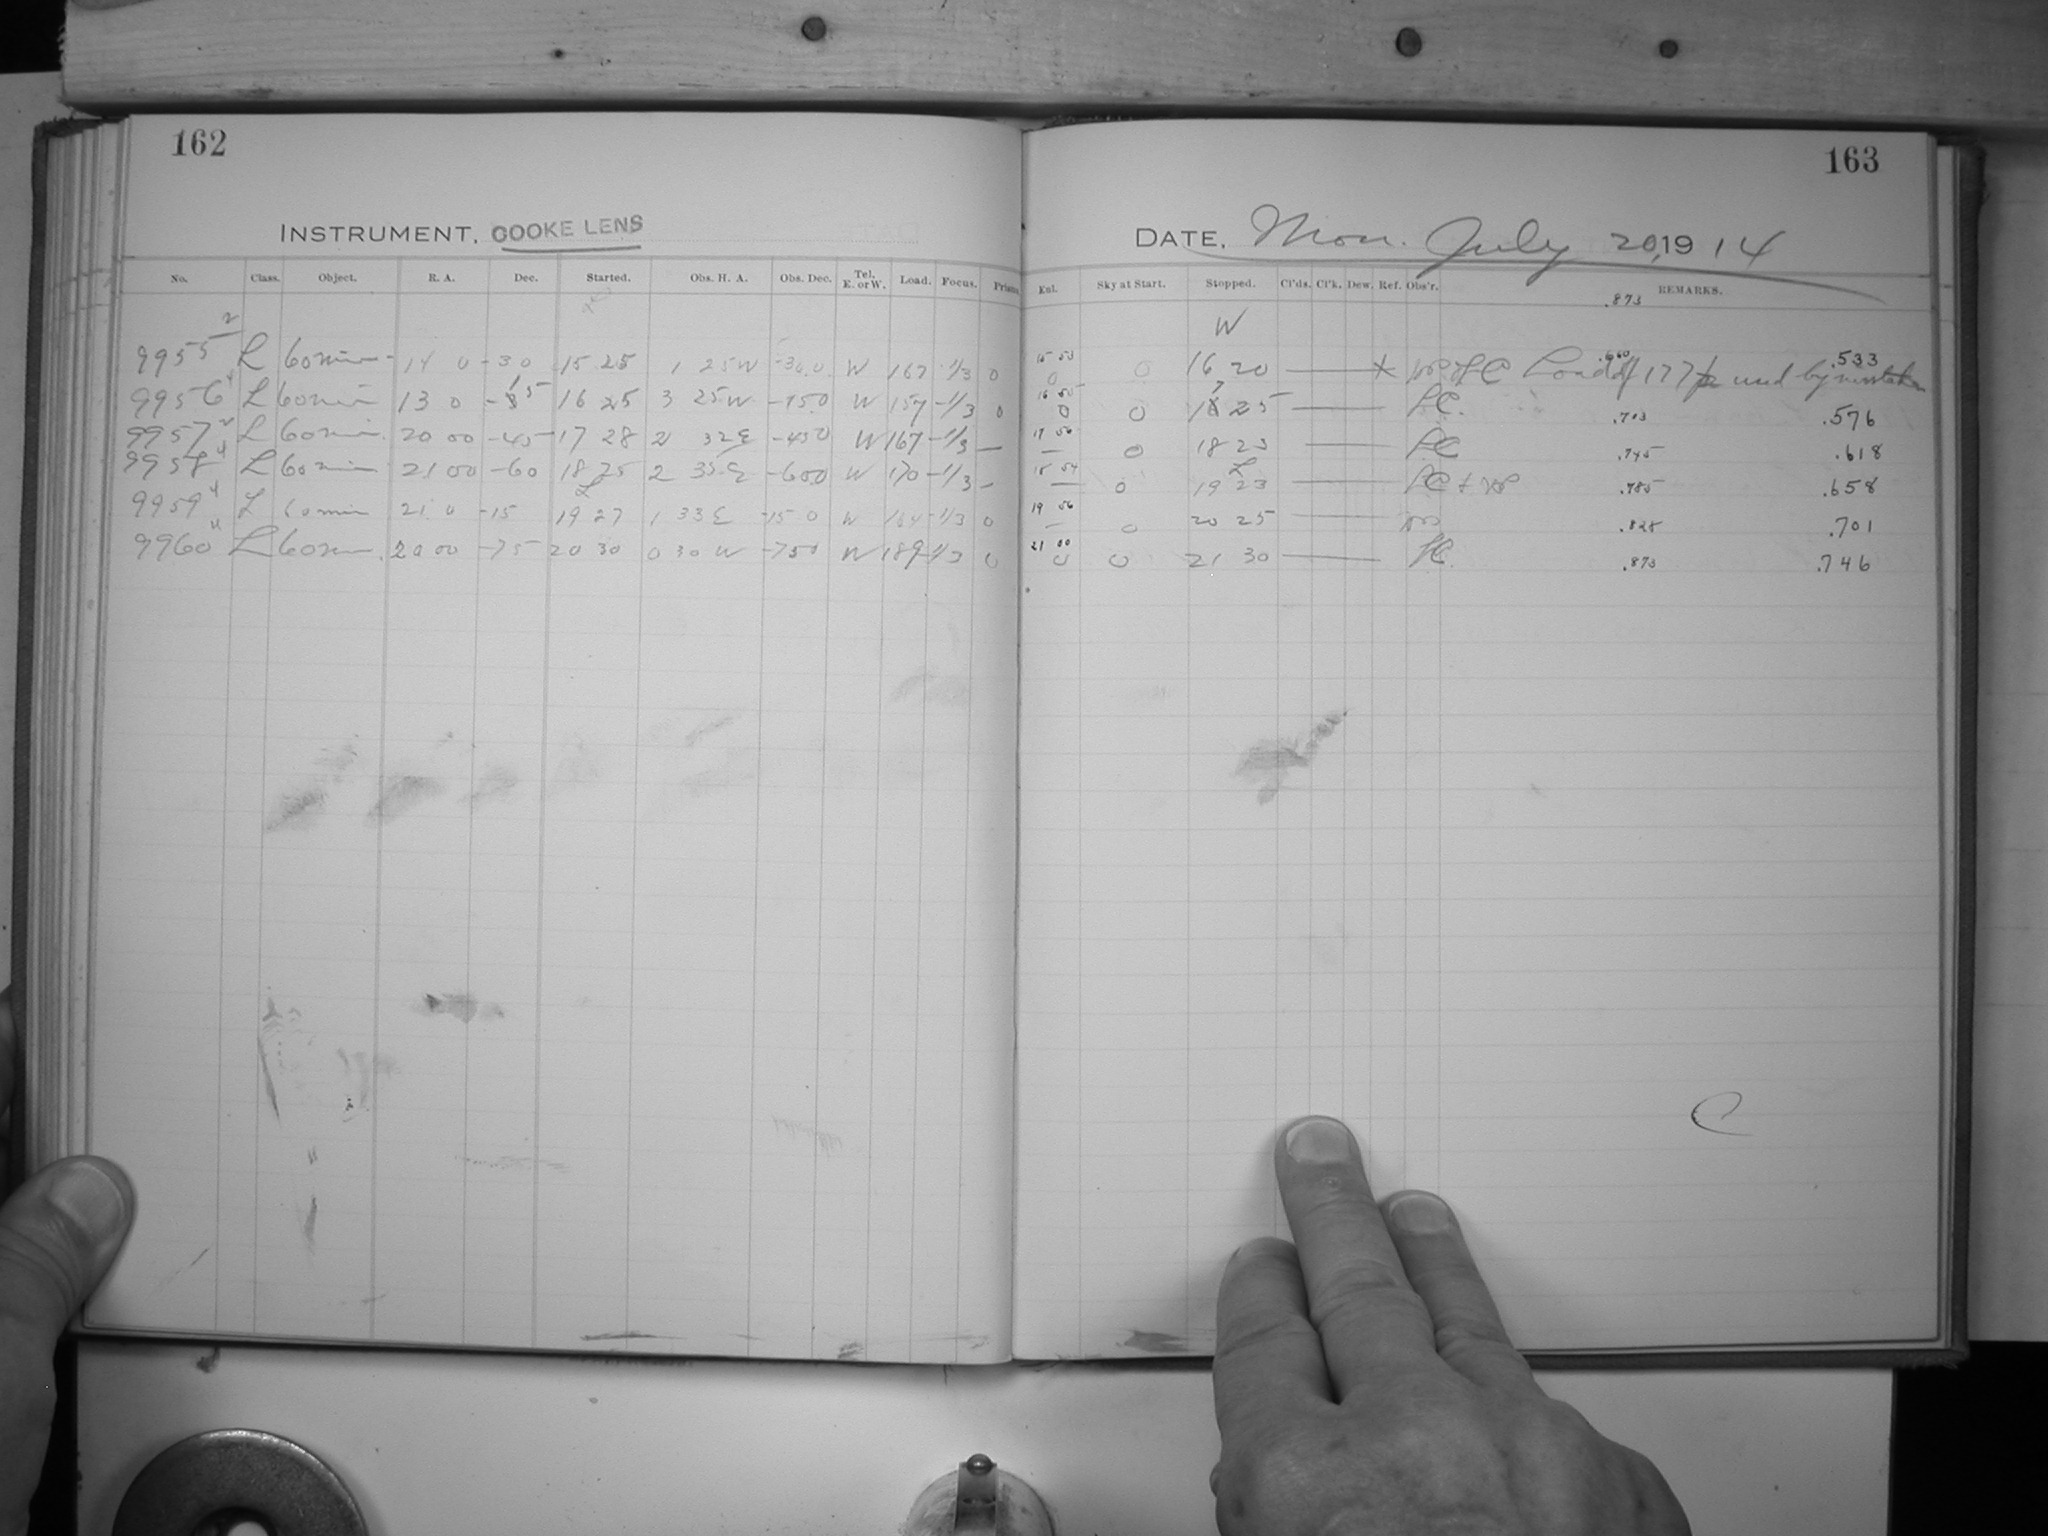 162
INSTRUMENT, COOKE LENS
No. Class. Object. R. A. Dec. Started. Obs. H. A. Obs. Dec. Tel. E. or W. Load. Focus. Prism
9955 2 L 60 min - 14 0 -30 15 25 1 25 W -30 0 W 167 -1/3 0
9956 4 L 60 min 13 0 - 15 16 25 3 25 W -15 0 W 157 -1/3 0
9957 2 L 60 min. 20 00 -45 17 28 2 32 E -45 0 W 167 -1/3 —
9958 4 L 60 min 21 00 -60 18 25 2 35 E -60 0 W 170 -1/3 -
9959 4 L 60 min 21 0 -15 19 27 1 33 E -15 0 W 164 -1/3 0
9960 4 L 60 min. 20 00 -75 20 30 0 30 W -75 0 W 189 -1/3 0
163
DATE, Mon. July 20, 1914
Exl. Sky at Start. Stopped. Cl'ds. Cl'k. Dew. Ref. Obs'r. REMARKS.
.873
W
15 53 0 0 16 20 X LC Load of 177 used by mistake .660 .533
0 0 17 25 LC. .703 .576
17 56 — 0 18 23 LC .745 .618
— 0 19 23 LC + .785 .658
19 56 — 0 20 25 .828 .701
21 00 0 0 21 30 LC. .873 .746
C